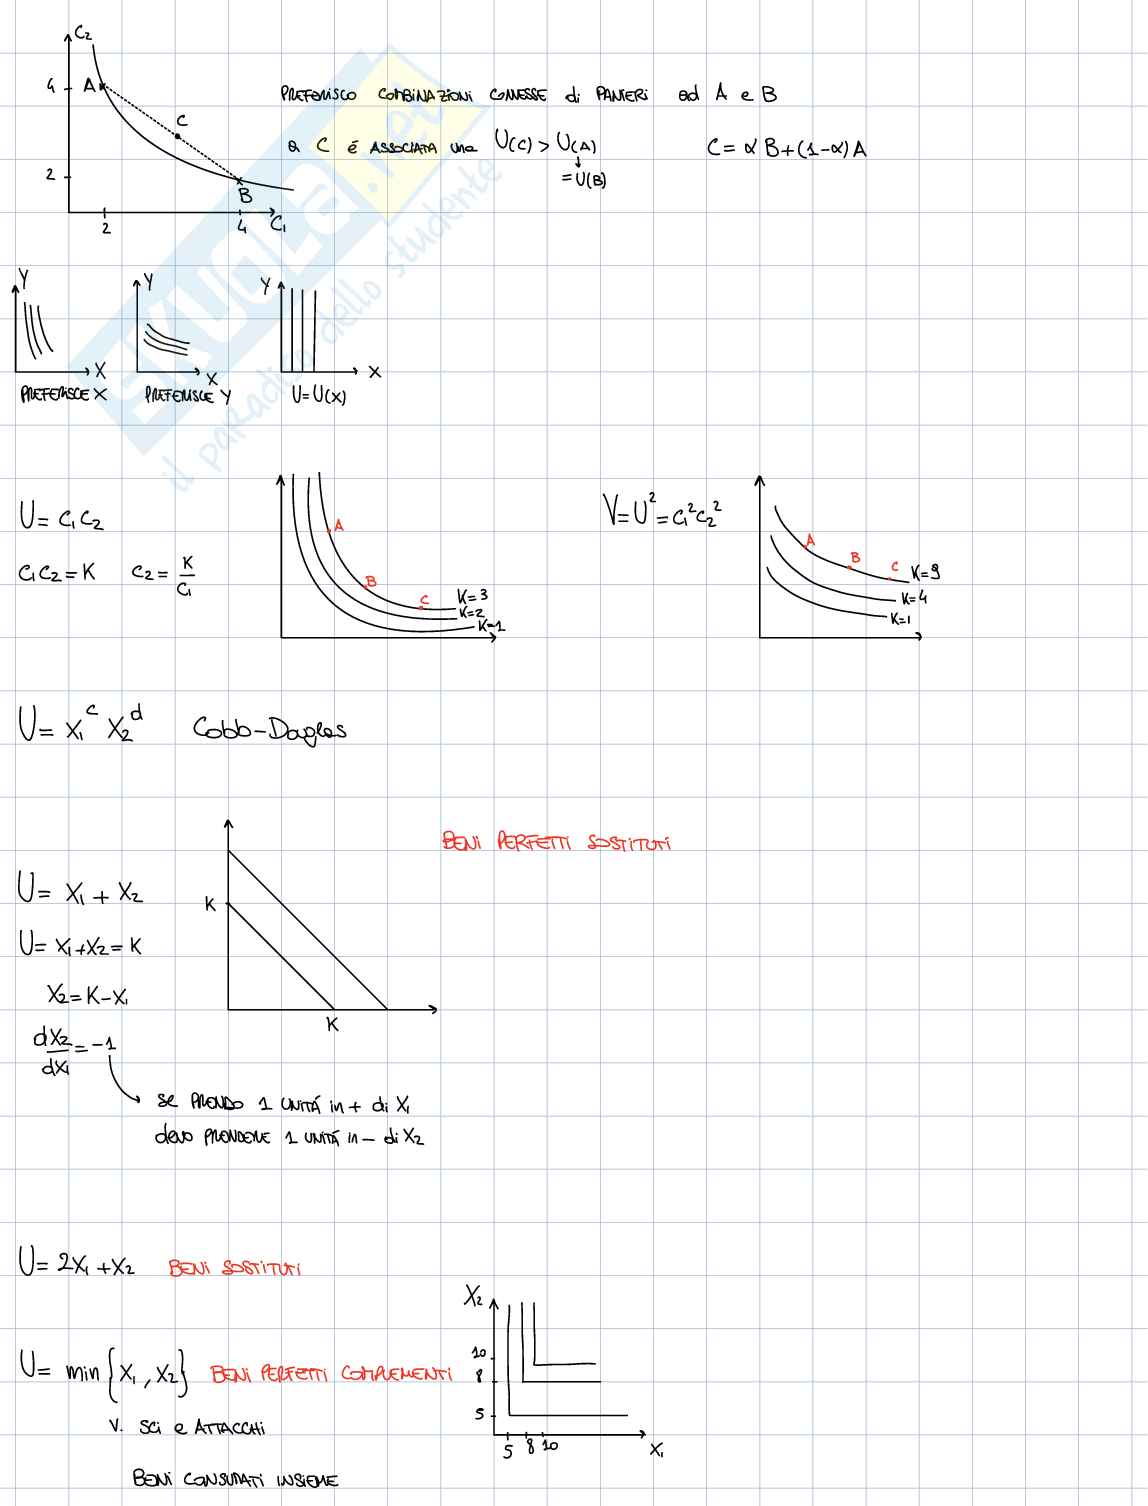 C₂
4 A
C
2
B
2 4 C₁
PREFERISCO COMBINAZIONI CONVESSE di PANIERI ad A e B
a C é ASSOCIATA una U(C) > U(A)
= U(B)
C = αB + (1-α)A
SKUOLA.net
il paradiso dello studente
Y
X
PREFERISCE X
Y
X
PREFERISCE Y
Y
X
U = U(X)
U = C₁C₂
C₁C₂ = K C₂ = K/C₁
A
B
C
K=3
K=2
K=1
V = U² = C₁²C₂²
A
B
C
K=9
K=4
K=1
U = X₁^c X₂^d Cobb-Douglas
BENI PERFETTI SOSTITUTI
U = X₁ + X₂
K
U = X₁ + X₂ = K
X₂ = K - X₁
K
dX₂/dX₁ = -1
se PRENDO 1 UNITÁ in + di X₁
devo PRENDERE 1 UNITÁ in - di X₂
U = 2X₁ + X₂ BENI SOSTITUTI
U = min {X₁, X₂} BENI PERFETTI COMPLEMENTI
V. SCI e ATTACCHI
BENI CONSUMATI INSIEME
X₂
10
8
5
5 8 10
X₁